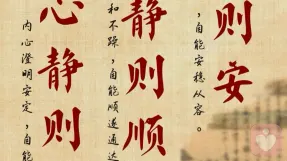 则安
，自能安稳从容。
静则顺
和不躁，自能顺遂通达
心静则
内心澄明安定，自能